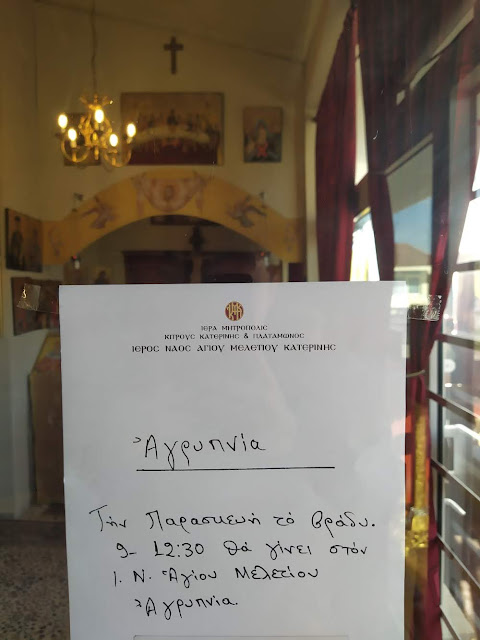 ΙΕΡΑ ΜΗΤΡΟΠΟΛΙΣ
ΚΙΤΡΟΥΣ ΚΑΤΕΡΙΝΗΣ & ΠΛΑΤΑΜΩΝΟΣ
ΙΕΡΟΣ ΝΑΟΣ ΑΓΙΟΥ ΜΕΛΕΤΙΟΥ ΚΑΤΕΡΙΝΗΣ
Ἀγρυπνία
Τήν Παρασκευή τό βράδυ.
9- 12:30 θά γίνει στόν
Ι. Ν. Ἁγίου Μελετίου
Ἀγρυπνία.